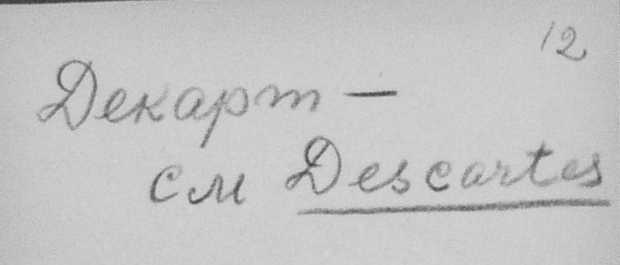 12
Декарт —
см Descartes